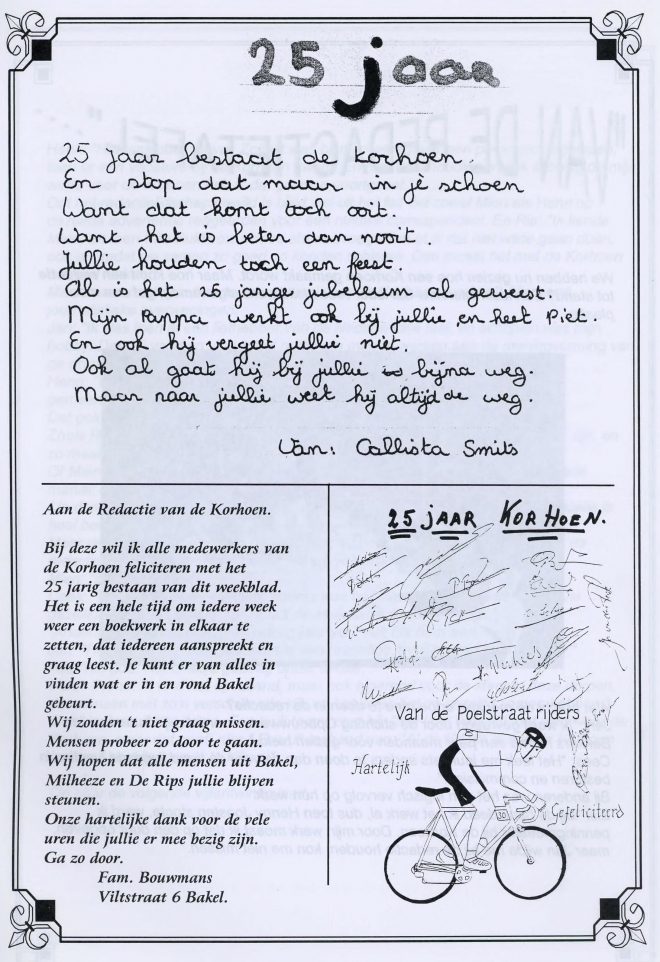 25 jaar
25 jaar bestaat de korhoen.
En stop dat maar in je schoen
Want dat komt toch ooit.
Want het is beter dan nooit.
Jullie houden toch een feest.
Al is het 25 jarige jubeleum al geweest.
Mijn Pappa werkt ook bij jullie en heet Piet.
En ook hij vergeet jullie niet.
Ook al gaat hij bij jullie bijna weg.
Maar naar jullie weet hij altijd de weg.
Van: Callista Smits
Aan de Redactie van de Korhoen.
Bij deze wil ik alle medewerkers van
de Korhoen feliciteren met het
25 jarig bestaan van dit weekblad.
Het is een hele tijd om iedere week
weer een boekwerk in elkaar te
zetten, dat iedereen aanspreekt en
graag leest. Je kunt er van alles in
vinden wat er in en rond Bakel
gebeurt.
Wij zouden 't niet graag missen.
Mensen probeer zo door te gaan.
Wij hopen dat alle mensen uit Bakel,
Milheeze en De Rips jullie blijven
steunen.
Onze hartelijke dank voor de vele
uren die jullie er mee bezig zijn.
Ga zo door.
Fam. Bouwmans
Viltstraat 6 Bakel.
25 JAAR KORHOEN.
Van de Poelstraat rijders
Hartelijk
Gefeliciteerd